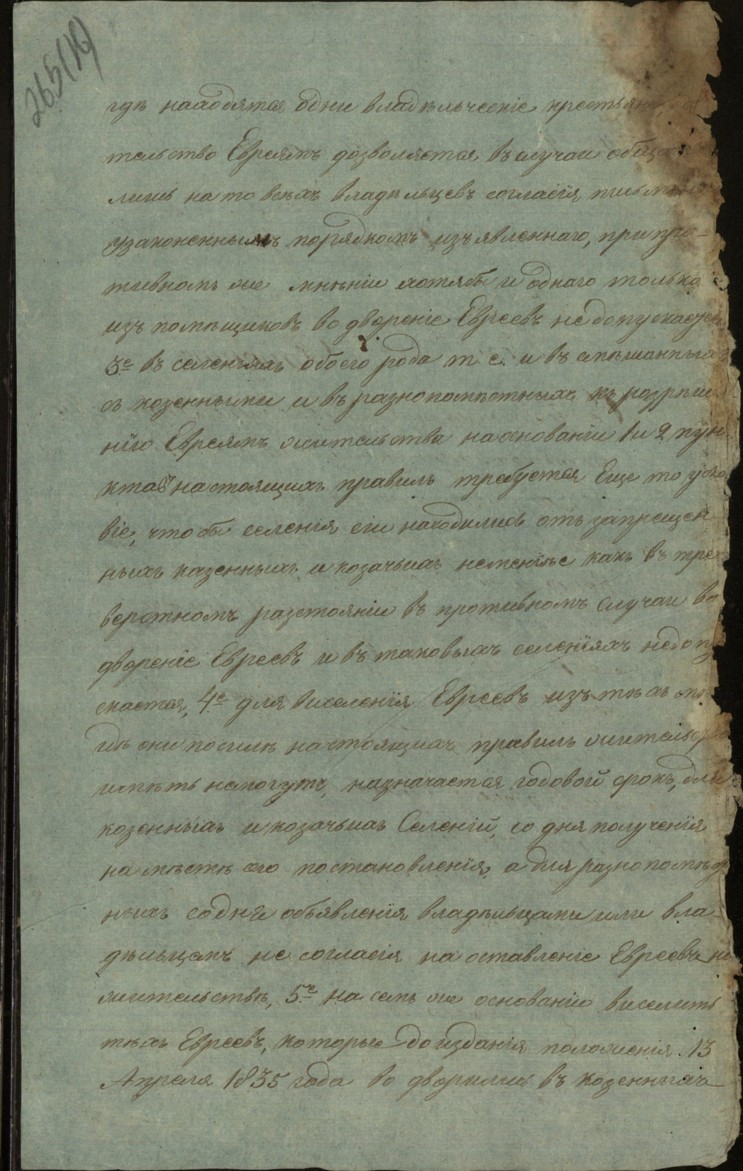 265(19)
гдѣ находятся одни владѣльческіе крестьяне
тельство Евреямъ дозволяется въ случаи общаго
лишь на то всѣхъ владѣльцевъ согласія, письменно
узаконеннымъ порядкомъ изъявленнаго, при про-
тивномъ же мнѣніи хотябы и однаго только
изъ помѣщиковъ водвореніе Евреевъ недопускается
3е въ селеніяхъ обоего рода т. е. и въ смѣшанныхъ
съ козенными и въ разнопомѣстныхъ къ розрѣше
нію Евреямъ жительства на основаніи 1 и 2 пун
ктовъ настоящихъ правилъ требуется Еще то усло
віе, чтобы селенія сіи находились отъ запрещен
ныхъ казенныхъ и козачьихъ неменѣе какъ въ трех
верстномъ разстояніи въ противномъ случаи во
двореніе Евреевъ и въ таковыхъ селеніяхъ недопу
скается, 4е для виселенія Евреевъ изъ тѣхъ мѣ
гдѣ они по силѣ настоящихъ правилъ жительства
имѣть немогутъ, назначается годовой срокъ, для
козенныхъ и козачьихъ Селеній, со дня полученія
на мѣстѣ сего постановленія, а для разнопомѣст
ныхъ со дня объявленія владѣльцами или вла-
дѣльцемъ не согласія на оставленіе Евреевъ на
жительствѣ, 5е на семъ же основаніи виселить
тѣхъ Евреевъ, которые до изданія положенія 13
Апреля 1835 года во дворились въ козенныхъ